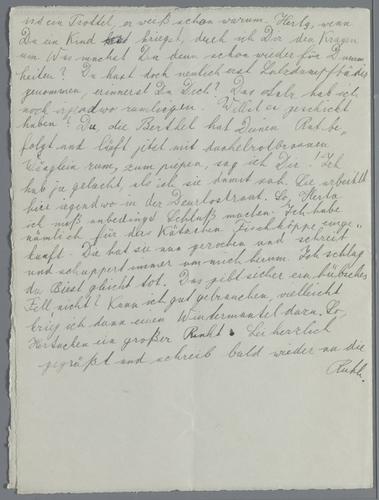 ist ein Trottel, er weiß schon warum. Herta, wenn
Du ein Kind kriegst, dreh ich Dir den Kragen
um. Was machst Du denn schon wieder für Dumm
heiten? Du hast doch neulich erst
genommen, erinnerst Du Dich? Das hab ich
noch irgendwo rumliegen. Willst es geschickt
haben? Du, die Berthel hat Deinen Rat be-
folgt und läuft jetzt mit dunkelrotbraunen
rum, zum piepen, sag ich Dir! Ich
hab ja gelacht, als ich sie damit sah. Sie arbeitet
hier irgendwo in der Deurlostraat. So, Herta
ich muß unbedingt Schluß machen. Ich habe
nämlich für das Kätzchen Fischköppe einge-
kauft. Da hat sie nun gerochen und schreit
und schuppert immer um mich herum. Ich schlag
das Biest gleich tot. Das gibt sicher ein hübsches
Fell, nicht? Kann ich gut gebrauchen, vielleicht
krieg ich dann einen Wintermantel dazu. So,
Hertachen ein großer Punkt. Sei herzlich
gegrüßt und schreib bald wieder an die
Ruth.